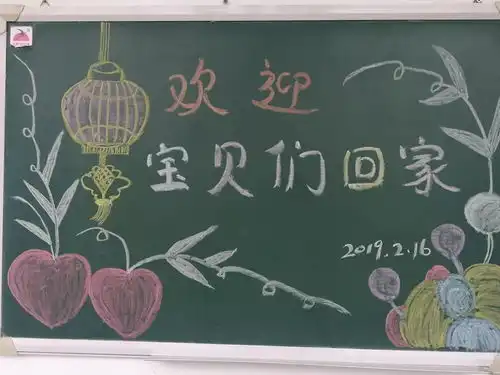 欢迎
宝贝们回家
2019.2.16